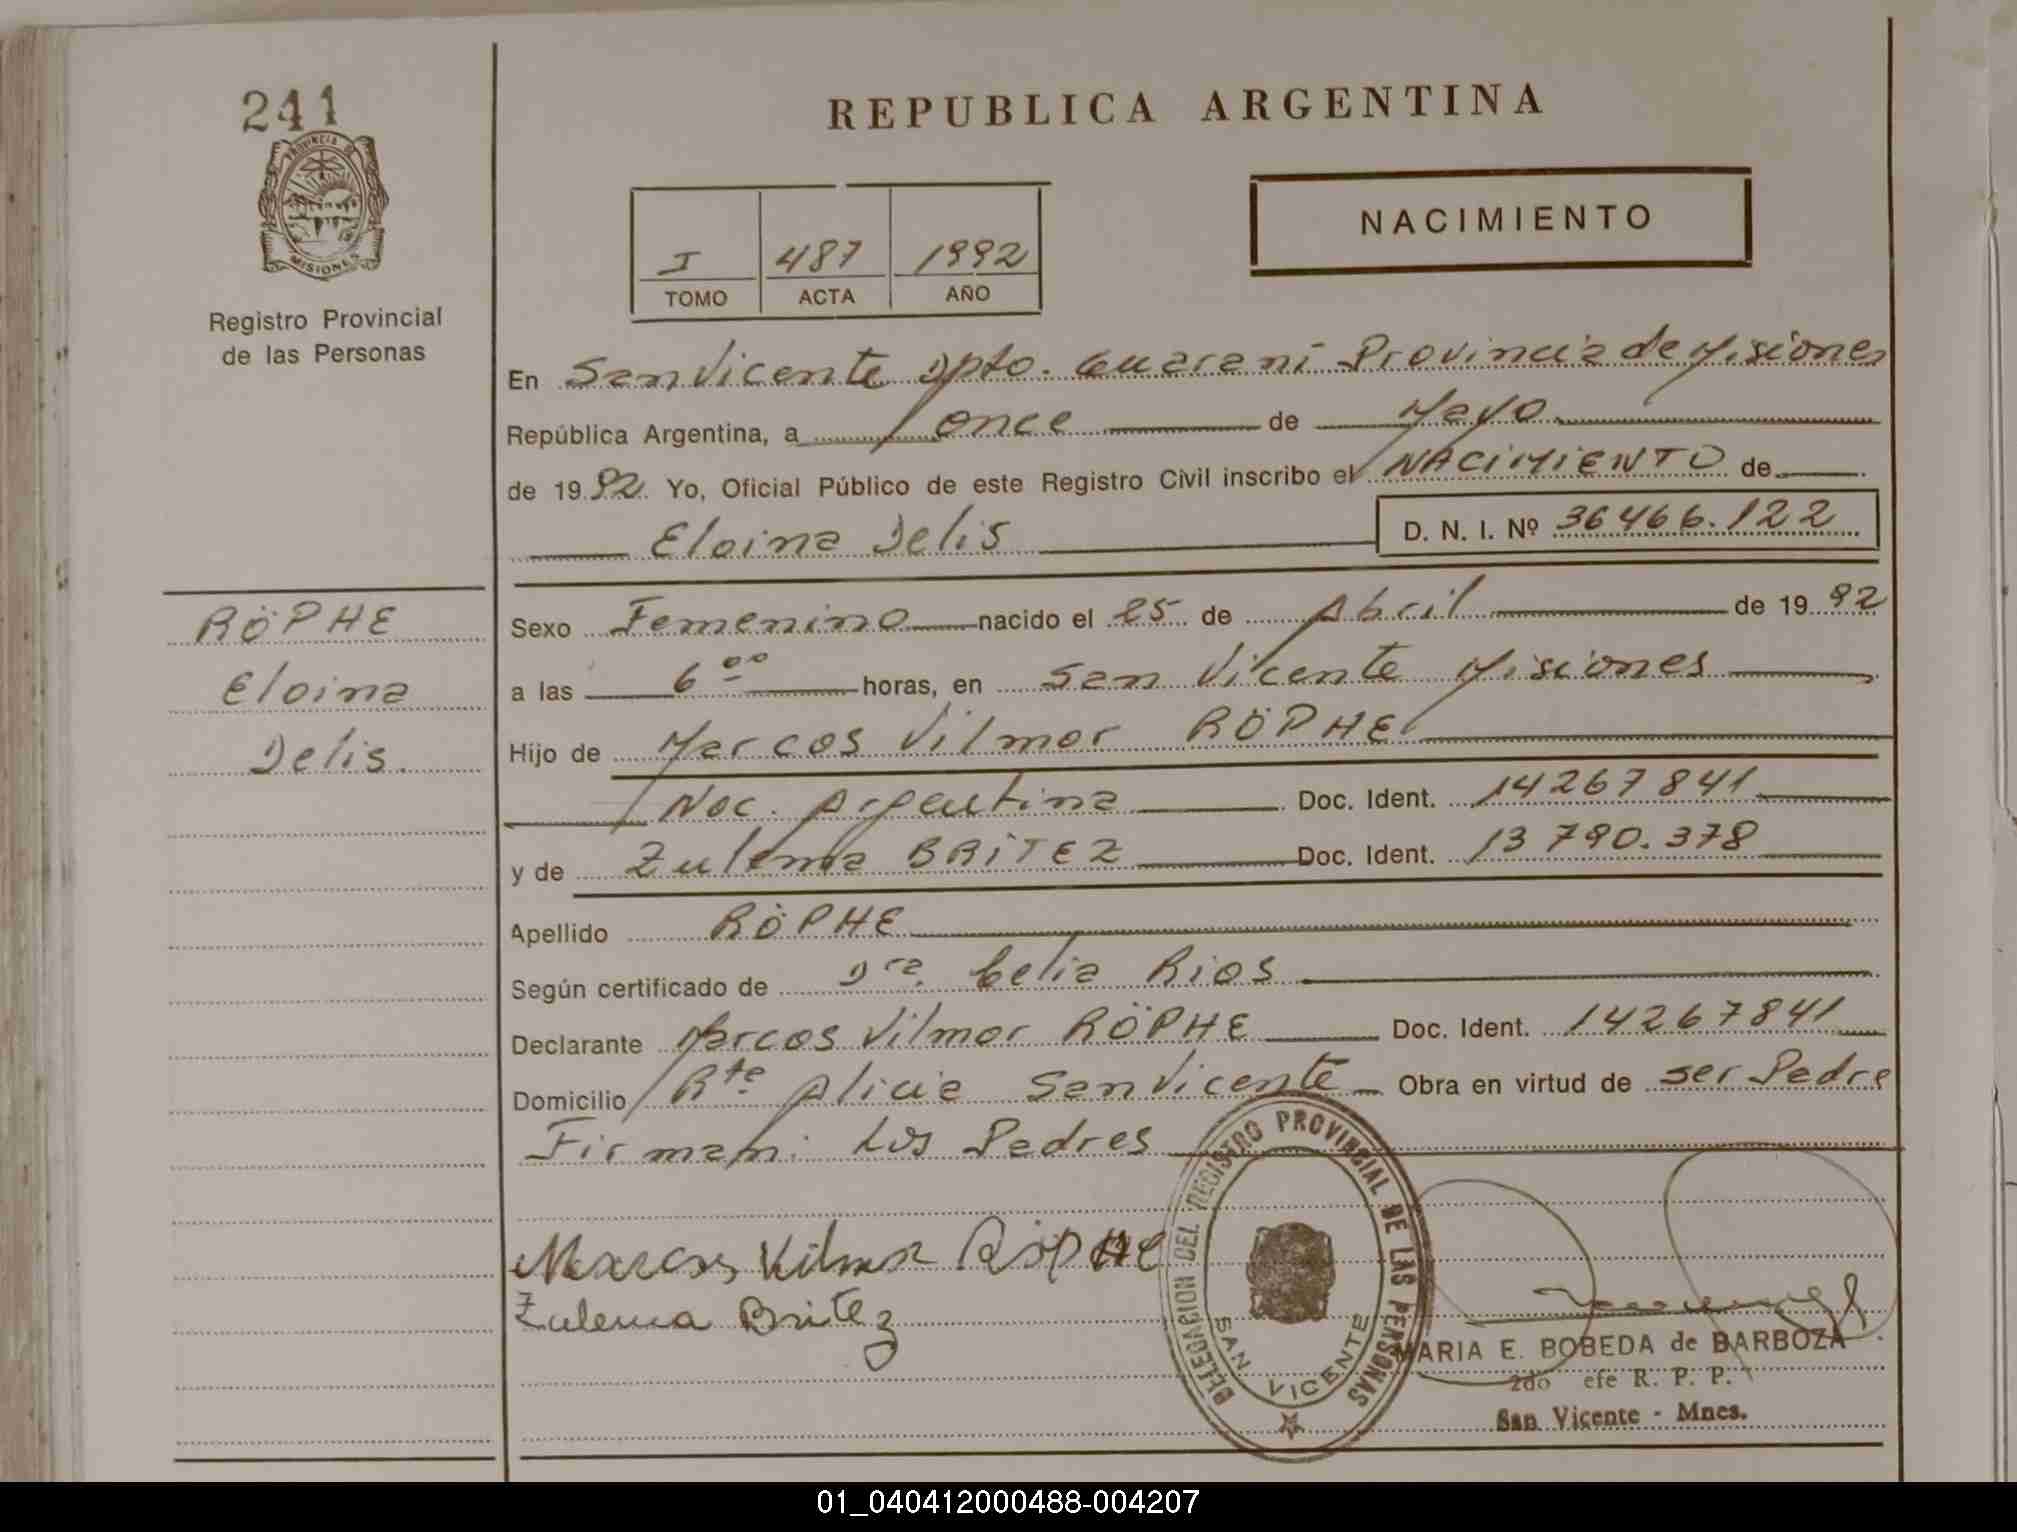 241
PROVINCIA DE
MISIONES
Registro Provincial
de las Personas
RÖPHE
Eloina
Delis.
REPUBLICA ARGENTINA
NACIMIENTO
I 487 1992
TOMO ACTA AÑO
En San Vicente Dpto. Guaraní Provincia de Misiones
República Argentina, a once de Mayo
de 1992. Yo, Oficial Público de este Registro Civil inscribo el NACIMIENTO de
Eloina Delis D. N. I. Nº 36466.122
Sexo Femenino nacido el 25 de Abril de 1992
a las 6⁰⁰ horas, en San Vicente Misiones
Hijo de Marcos Vilmor RÖPHE
Nac. Argentina Doc. Ident. 14267841
y de Zulema BRITEZ Doc. Ident. 13790.378
Apellido RÖPHE
Según certificado de Dra. Celia Rios
Declarante Marcos Vilmor RÖPHE Doc. Ident. 14267841
Domicilio Rta Alicia San Vicente Obra en virtud de ser Padre
Firman: Los Padres
Marcos Vilmor RÖPHE
Zulema Britez
DELEGACION DEL REGISTRO PROVINCIAL DE LAS PERSONAS
SAN VICENTE
MARIA E. BOBEDA de BARBOZA
2do efe R. P. P.
San Vicente - Mnes.
01_040412000488-004207